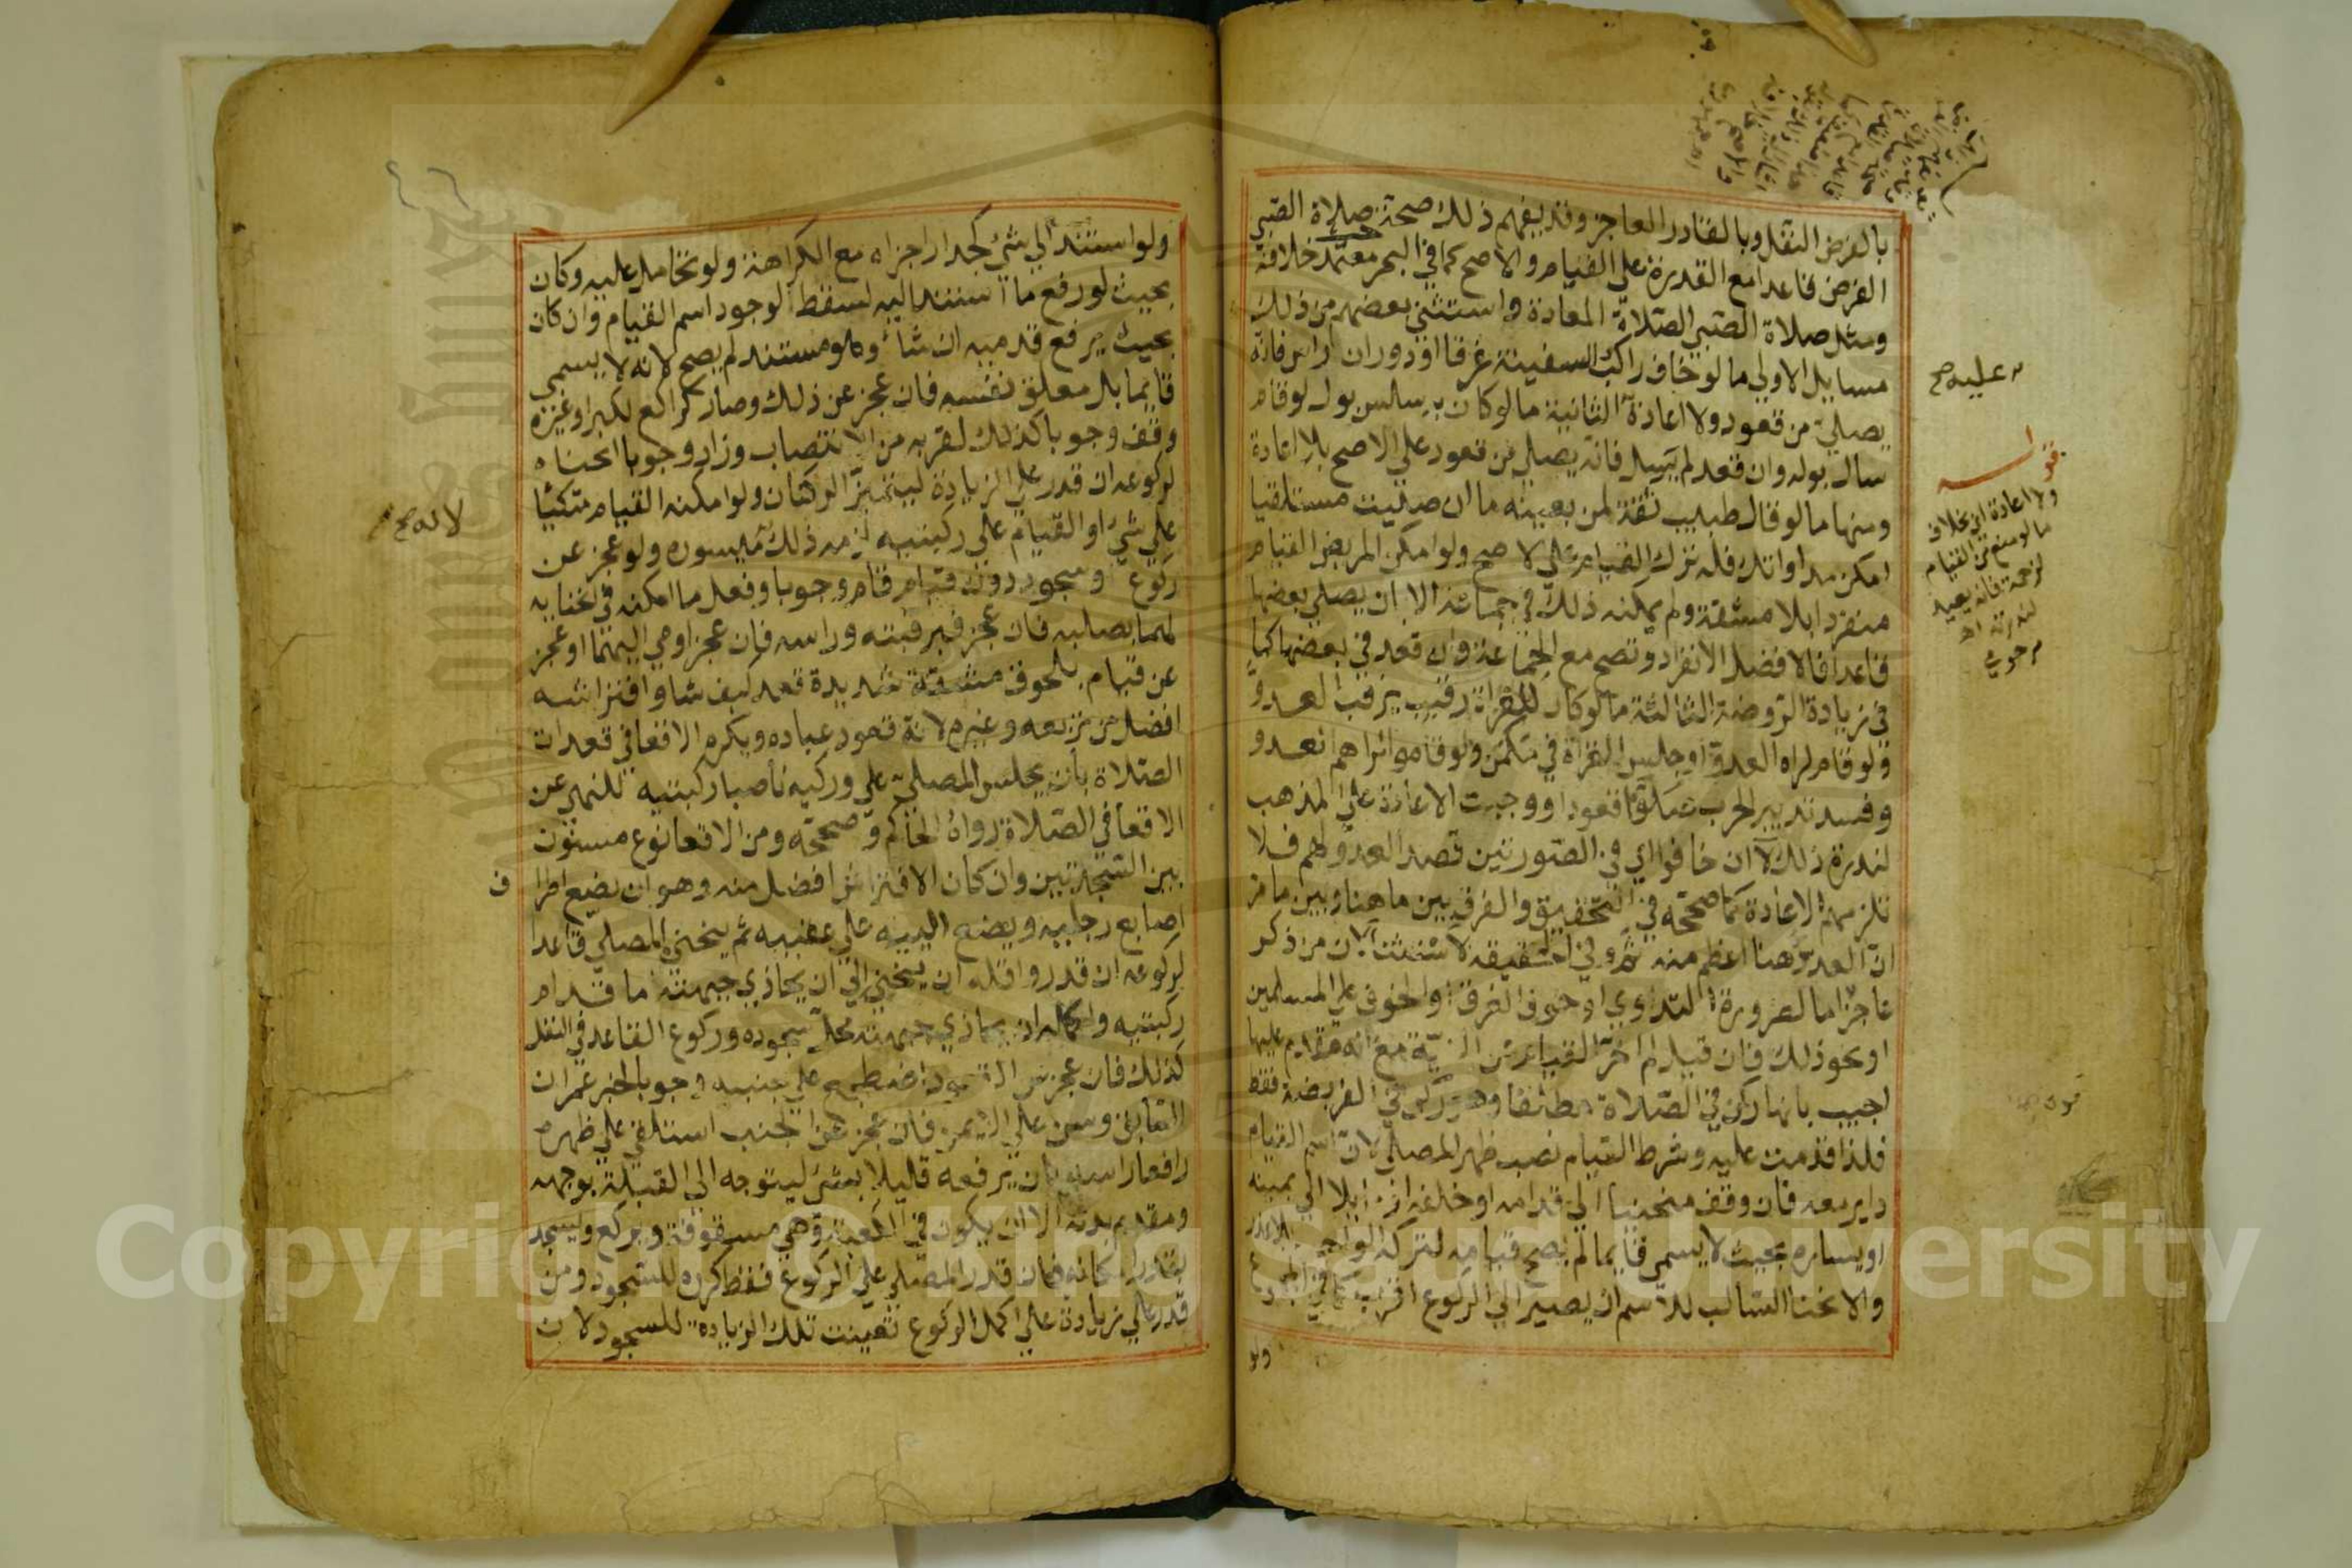 بالفرض النفل وبالقادر العاجز وقد يفهم ذلك صحة صلاة الصبي
الفرض قاعدا مع القدرة على القيام والاصح كما في البحر معتمد خلافه
ومثل صلاة الصبي الصلاة المعادة واستثنى بعضهم من ذلك
مسايل الاولى ما لو خاف راكب السفينة غرقا او دوران راس فانه
يصلي من قعود ولا اعادة الثانية ما لو كان به سلس بول لو قام
سال بوله وان قعد لم يسل فانه يصلي من قعود على الاصح بلا اعادة
ومنها ما لو قال طبيب ثقة لمن بعينه ما ان صليت مستلقيا
امكن مداواتك فله ترك القيام على الاصح ولو امكن المريض القيام
منفردا بلا مشقة ولم يمكنه ذلك في جماعة الا ان يصلي بعضها
قاعدا فالافضل الانفراد وتصح مع الجماعة وان قعد في بعضها كما
في زيادة الروضة الثالثة ما لو كان للغزاة رقيب يرقب العدو
ولو قام لراه العدو او جلس الغزاة في مكمن ولو قاموا لراهم العدو
وفسد تدبير الحرب صلوا قعودا ووجبت الاعادة على المذهب
لندرة ذلك لا ان خافوا اي في الصورتين قصد العدو لهم فلا
تلزمهم الاعادة كما صححه في التحقيق والفرق بين ما هنا وبين ما مر
ان العدو هنا اعظم منه ثم وفي الحقيقة لا استثناء لان من ذكر
عاجز اما لضرورة التداوي او خوف الغرق او الخوف على المسلمين
او نحو ذلك فان قيل لم اخر القيام عن النية مع انه مقدم عليها
اجيب بانها ركن في الصلاة مطلقا وهو ركن في الفريضة فقط
فلذا قدمت عليه وشرط القيام نصب ظهر المصلي لان اسم القيام
داير معه فان وقف منحنيا الى قدامه او خلفه او مايلا الى يمينه
او يساره بحيث لا يسمى قايما لم يصح قيامه لتركه الواجب بلا عذر
والانحنا السالب للاسم ان يصير الى الركوع اقرب كما في المجموع
ولو
عليه صح
قوله
ولا اعادة اي بخلاف
ما لو منع من القيام
لزحمة فانه يعيد
لندرته اه
م ر حوبي
ولو استند الى شئ كجدار اجزاه مع الكراهة ولو تحامل عليه وكان
بحيث لو رفع ما استند اليه لسقط لوجود اسم القيام وان كان
بحيث يرفع قدميه ان شاء وهو مستند لم يصح لانه لا يسمى
قايما بل معلق نفسه فان عجز عن ذلك وصار كراكع لكبر او غيره
وقف وجوبا كذلك لقربه من الانتصاب وزاد وجوبا انحناه
لركوعه ان قدر على الزيادة ليتميز الركنان ولو امكنه القيام متكئا
على شئ او القيام على ركبتيه لزمه ذلك لانه ميسوره ولو عجز عن
ركوع وسجود دون قيام قام وجوبا وفعل ما امكنه في انحنايه
لهما بصلبه فان عجز فبرقبته وراسه فان عجز اومى اليهما او عجز
عن قيام بلحوق مشقة شديدة قعد كيف شا وافتراشه
افضل من تربعه وغيره لانه قعود عباده ويكره الاقعا في قعدات
الصلاة بان يجلس المصلي على وركيه ناصبا ركبتيه للنهي عن
الاقعا في الصلاة رواه الحاكم وصححه ومن الاقعا نوع مسنون
بين السجدتين وان كان الافتراش افضل منه وهو ان يضع اطراف
اصابع رجليه ويضع اليييه على عقبيه ثم ينحني المصلي قاعدا
لركوعه ان قدر واقله ان ينحني الى ان يحاذي جبهته ما قدام
ركبتيه واكمله ان يحاذي جبهته محل سجوده وركوع القاعد في النفل
كذلك فان عجز عن القعود اضطجع على جنبه وجوبا لخبر عمران
السابق وسن على الايمن فان عجز عن الجنب استلقى على ظهره
رافعا راسه بان يرفعه قليلا بشئ ليتوجه الى القبلة بوجهه
ومقدم بدنه الا ان يكون في الكعبة وهي مسقوفة ويركع ويسجد
بقدر امكانه فان قدر المصلي على الركوع فقط كرره للسجود ومن
قدر على زيادة على اكمل الركوع تعينت تلك الزيادة للسجود لان
لانه صح
Copyright © King Saud University